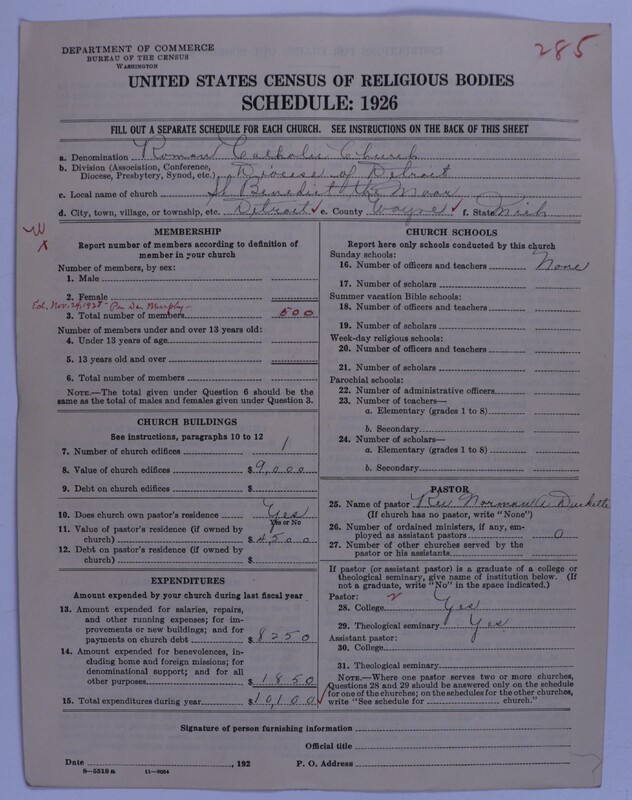 DEPARTMENT OF COMMERCE
BUREAU OF THE CENSUS
WASHINGTON
285
UNITED STATES CENSUS OF RELIGIOUS BODIES
SCHEDULE: 1926
FILL OUT A SEPARATE SCHEDULE FOR EACH CHURCH. SEE INSTRUCTIONS ON THE BACK OF THIS SHEET
a. Denomination Roman Catholic Church
b. Division (Association, Conference,
Diocese, Presbytery, Synod, etc.) Diocese of Detroit
c. Local name of church St Benedict the Moor
d. City, town, village, or township, etc. Detroit ✓ e. County Wayne ✓ f. State Mich
W
x
MEMBERSHIP
Report number of members according to definition of
member in your church
Number of members, by sex:
1. Male
2. Female
Est. Nov. 29, 1928 - Per Dr. Murphy -
3. Total number of members 500
Number of members under and over 13 years old:
4. Under 13 years of age
5. 13 years old and over
6. Total number of members
NOTE.—The total given under Question 6 should be the
same as the total of males and females given under Question 3.
CHURCH BUILDINGS
See instructions, paragraphs 10 to 12
7. Number of church edifices 1
8. Value of church edifices $ 9,000
9. Debt on church edifices $
10. Does church own pastor's residence Yes
Yes or No
11. Value of pastor's residence (if owned by
church) $ 4500
12. Debt on pastor's residence (if owned by
church) $
EXPENDITURES
Amount expended by your church during last fiscal year
13. Amount expended for salaries, repairs,
and other running expenses; for im-
provements or new buildings; and for
payments on church debt $ 8250
14. Amount expended for benevolences, in-
cluding home and foreign missions; for
denominational support; and for all
other purposes $ 1850
15. Total expenditures during year $ 10,100 ✓
CHURCH SCHOOLS
Report here only schools conducted by this church
Sunday schools:
16. Number of officers and teachers None
17. Number of scholars
Summer vacation Bible schools:
18. Number of officers and teachers
19. Number of scholars
Week-day religious schools:
20. Number of officers and teachers
21. Number of scholars
Parochial schools:
22. Number of administrative officers
23. Number of teachers—
a. Elementary (grades 1 to 8)
b. Secondary
24. Number of scholars—
a. Elementary (grades 1 to 8)
b. Secondary
PASTOR
25. Name of pastor Rev Norman A Dukette
(If church has no pastor, write "None")
26. Number of ordained ministers, if any, em-
ployed as assistant pastors 0
27. Number of other churches served by the
pastor or his assistants
If pastor (or assistant pastor) is a graduate of a college or
theological seminary, give name of institution below. (If
not a graduate, write "No" in the space indicated.)
Pastor: 2
28. College Yes
29. Theological seminary Yes
Assistant pastor:
30. College
31. Theological seminary
NOTE.—Where one pastor serves two or more churches,
Questions 28 and 29 should be answered only on the schedule
for one of the churches; on the schedules for the other churches,
write "See schedule for church."
Signature of person furnishing information
Official title
Date , 192 P. O. Address
8—5518a 11—9054